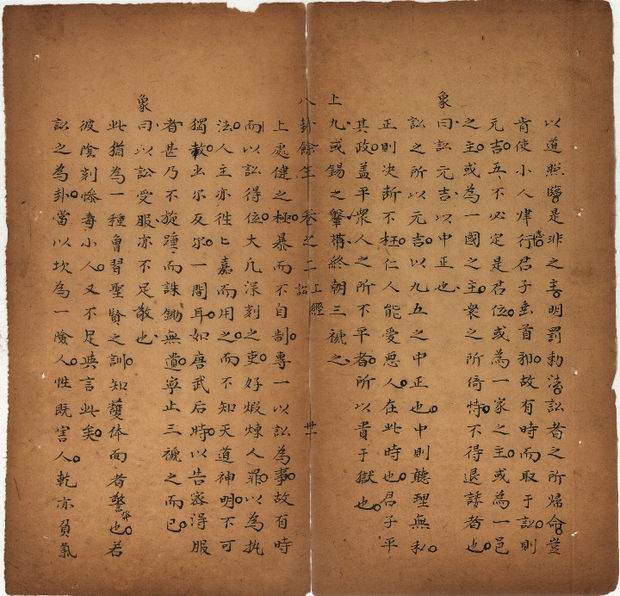 以道照臨是非之主明罰勅法訟者之所歸命豈
肯使小人肆行君子垂首邪故有時而取于訟則
元吉五不必定是君位或為一家之主或為一邑
之主或為一國之主衆之所倚恃不得退諉者也
象曰訟元吉以中正也
訟之所以元吉以九五之中正也中則聽理無私
正則决断不枉仁人能愛惡人在此時也君子平
其政蓋平衆人之所不平者所以貴于獄也
上九或錫之鞶帶終朝三褫之
八卦餘生 卷之二 上經 訟 卅一
上處健之極暴而不自制專一以訟為事故有時
而以訟得位大凡深刻之吏好煅煉人罪以為執
法人主亦往〻嘉而用之而不知天道神明不可
獨殺出尔反尔一間耳如唐武后時以告密得服
者甚乃不旋踵而誅鋤無遺寧止三褫之而已
象曰以訟受服亦不足敬也
此猶為一種曾習聖賢之訓知護体面者警也若
彼陰刻慘毒小人又不足與言此矣
訟之為卦當以坎為一險人性既害人乾亦負氣